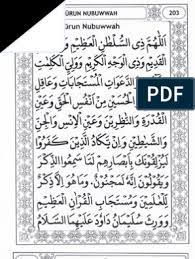 ÛRUN NUBUWWAH 203
اَللّٰهُمَّ ذِى السُّلْطٰنِ الْعَظِيْمِ
الْقَدِيْمِ وَذِى الْوَجْهِ الْكَرِيْمِ وَوَلِيِّ الْكَلِمٰتِ
الدَّعَوٰتِ الْمُسْتَجَابَةِ
الْحُسَيْنِ مِنْ اَنْفُسِ الْحَقِّ عَيْنِ
الْقُدْرَةِ وَالنّٰظِرِيْنَ وَعَيْنِ الْاِنْسِ وَالْجِنِّ
وَالشَّيٰطِيْنِ وَاِنْ يَّكَادُ الَّذِيْنَ كَفَرُوْا
لَيُزْلِقُوْنَكَ بِاَبْصَارِهِمْ لَمَّا سَمِعُوا الذِّكْرَ
وَيَقُوْلُوْنَ اِنَّهٗ لَمَجْنُوْنٌ ۞ وَمَا هُوَ اِلَّا ذِكْرٌ
لِّلْعٰلَمِيْنَ وَمُسْتَجَابِ الْقُرْاٰنِ الْعَظِيْمِ
وَوَرِثَ سُلَيْمٰنُ دَاوٗدَ عَلَيْهِمَا السَّلَامُ
PDF